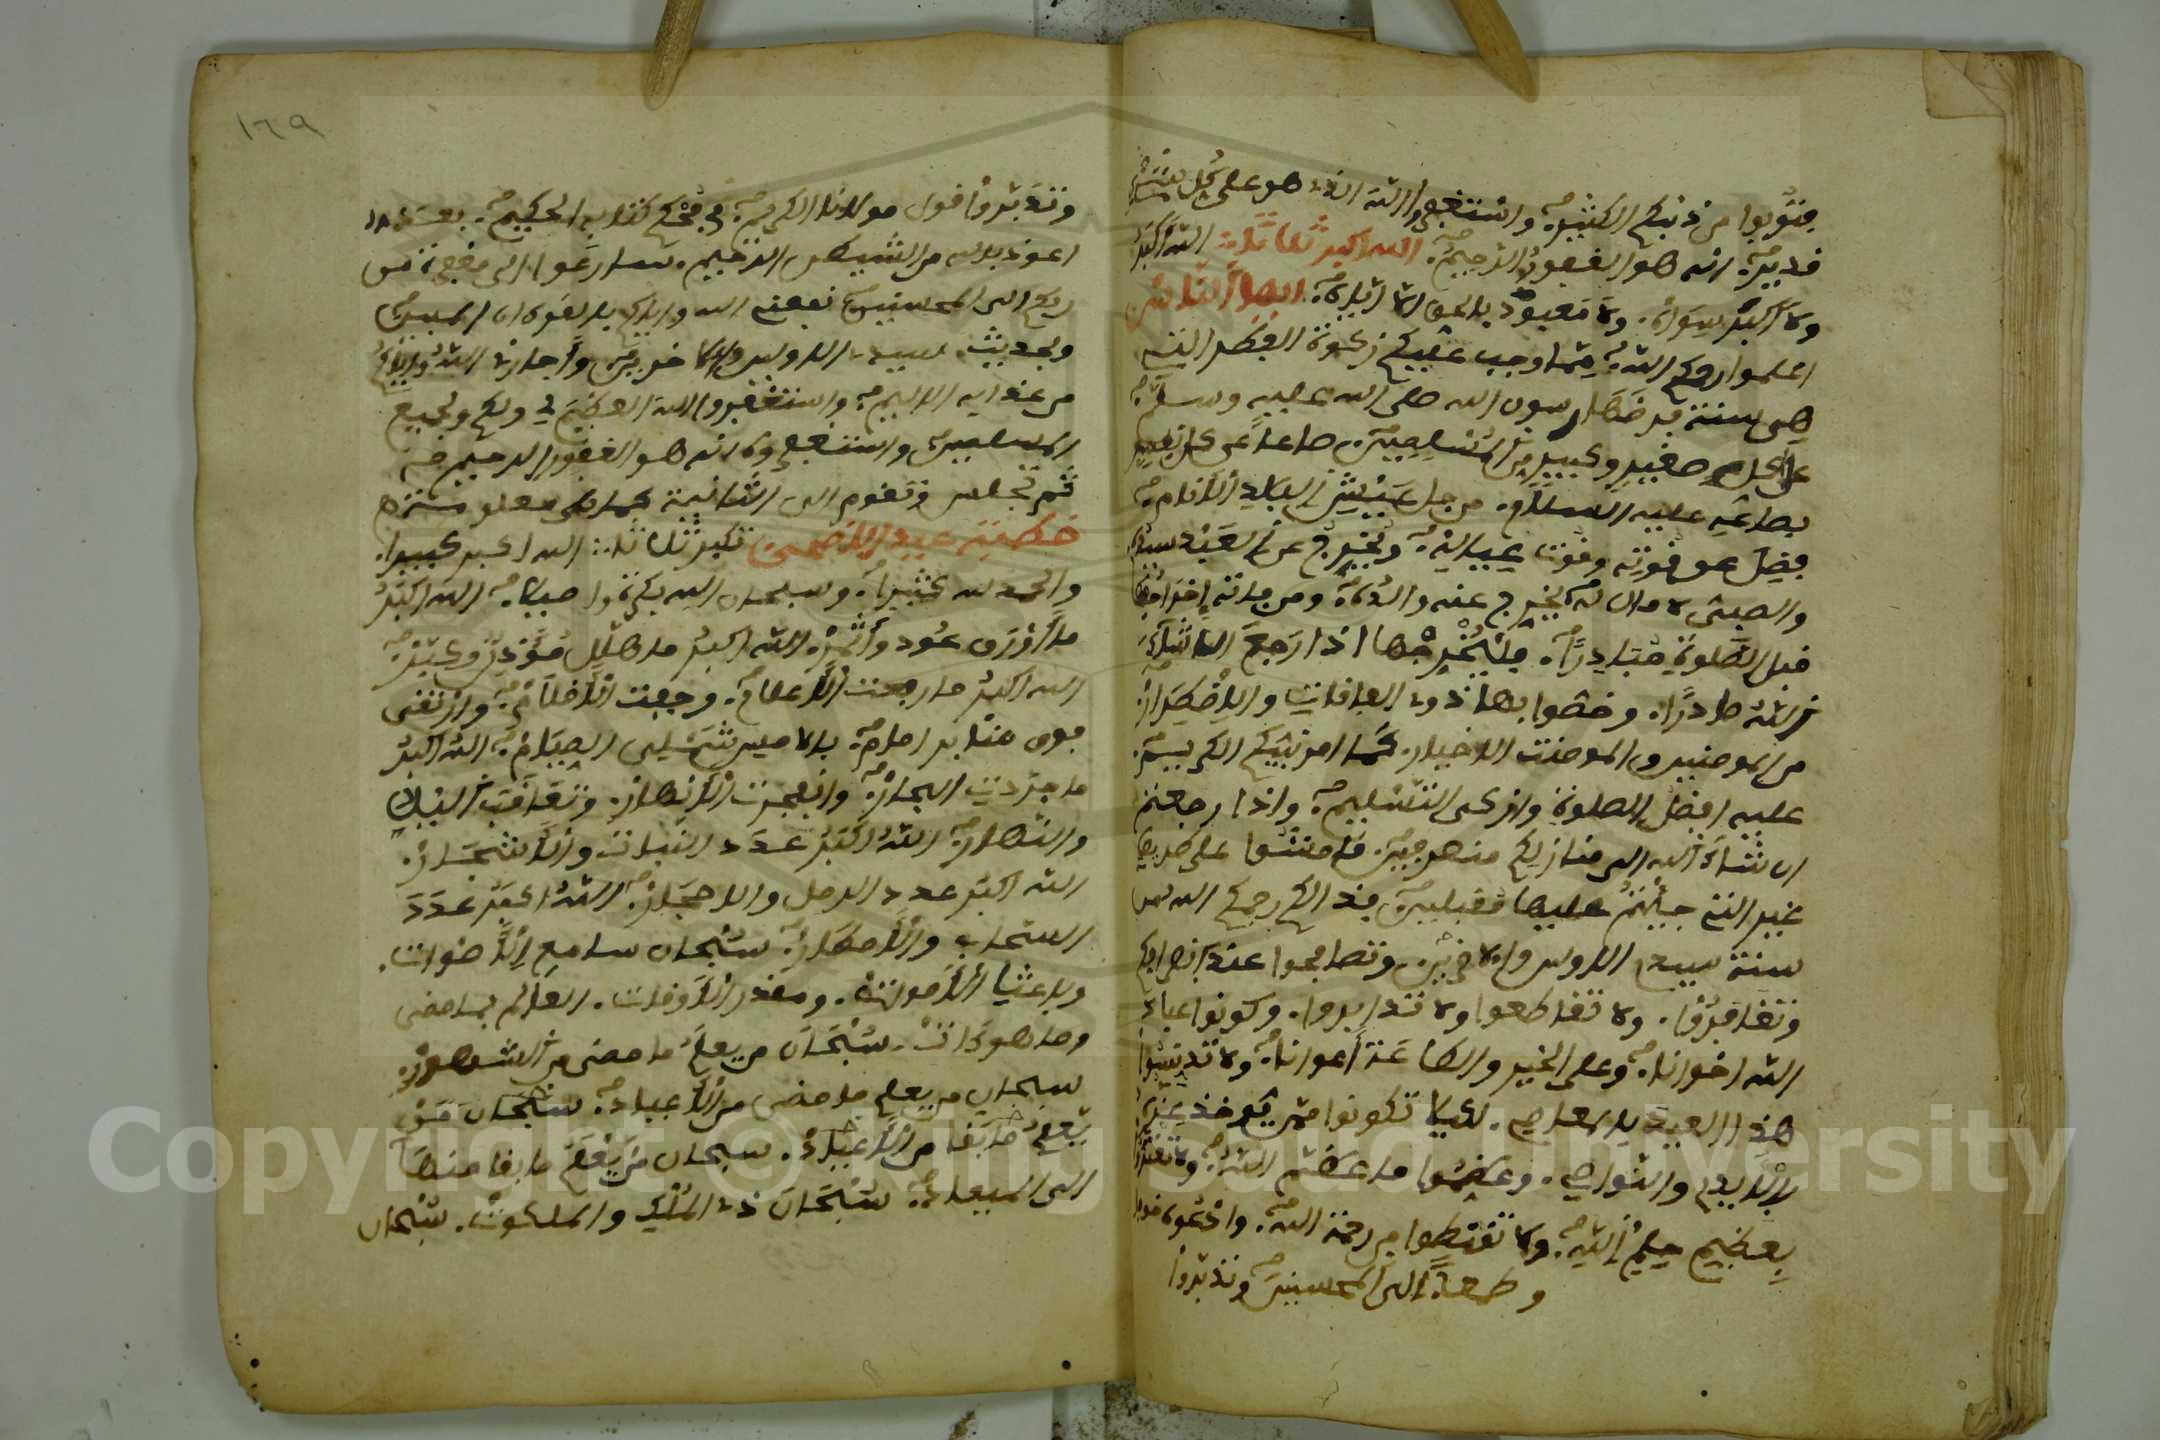 فتوبوا من ذنبكم الكثير واستغفروا الله الذي هو على كل شيء
قدير انه هو الغفور الرحيم الله اكبر ثلاثا الله اكبر
ولا اكبر سواه ولا معبود بالحق الا اياه ايها الناس
اعلموا رحمكم الله مما وجب عليكم زكوة الفطر التي
هي سنة فرضها رسول الله صلى الله عليه وسلم
على كل صغير وكبير من المسلمين صاعا عن كل نفس
بصاعه عليه السلام من جل عيش البلد
فضل عن قوته وقوت عياله ويخرج عن العبد سيده
والصبي لا مال له يخرج عنه والده ومن
قبل الصلوة مبادرا فليخرجها اذا رجع
وخصوا بها ذوي الفاقات والاضطرار
من المومنين والمومنت الاخيار كما امر نبيكم الكريم
عليه افضل الصلوة وازكى التسليم واذا رجعتم
ان شاء الله الى منازلكم منصرفين فامشوا على طريق
غير التي جئتم عليها مقبلين فذالكم رحمكم الله من
سنة سيد الاولين والاخرين وتصافحوا عند
ولا تقاطعوا ولا تدابروا وكونوا عباد
الله اخوانا وعلى الخير والطاعة اعوانا ولا تدنسوا
هذا العيد بالمعاصي لئلا تكونوا ممن يوخذ
والنواصي وعظموا ما عظم الله ولا
بعظيم حلم الله ولا تقنطوا من رحمة الله وادعوه خوفا
وطمعا الى المحسنين وتدبروا
١٦٩
وتدبروا قول مولانا الكريم في محكم كتابه الحكيم بعد
اعوذ بالله من الشيطن الرجيم سارعوا الى مغفرة من
ربكم الى المحسنين نفعني الله واياكم بالقران المبين
وبحديث سيد الاولين والاخرين واجارنا الله واياكم
من عذابه الاليم واستغفروا الله العظيم لي ولكم ولجميع
المسلمين واستغفروه انه هو الغفور الرحيم
ثم تجلس وتقوم الى الثانية كما
خطبة عيد الاضحى تكبر ثلاثا الله اكبر كبيرا
والحمد لله كثيرا وسبحان الله بكرة واصيلا الله اكبر
ما اورق عود واثمر الله اكبر ما هلل موذن وكبر
الله اكبر ما رفعت الاعلام وجفت الاقلام وارتقى
فوق منابر امام بالاميس الصيام الله اكبر
ما جرت البحار وانفجرت الانهار وتعاقب اليل
والنهار الله اكبر عدد النبات والاشجار
الله اكبر عدد الرمل والاحجار الله اكبر عدد
السحاب والامطار سبحان سامع الاصوات
وباعث الاموات ومقدر الاوقات العالم بما مضى
وما هو ءات سبحان من يعلم ما مضى من الشهور
سبحان من يعلم ما مضى من الاعياد سبحان من
يعلم ما بقا من الاعياد سبحان من يعلم ما بقا منها
الى الميعاد سبحان ذي الملك والملكوت سبحان
Copyright © King Saud University